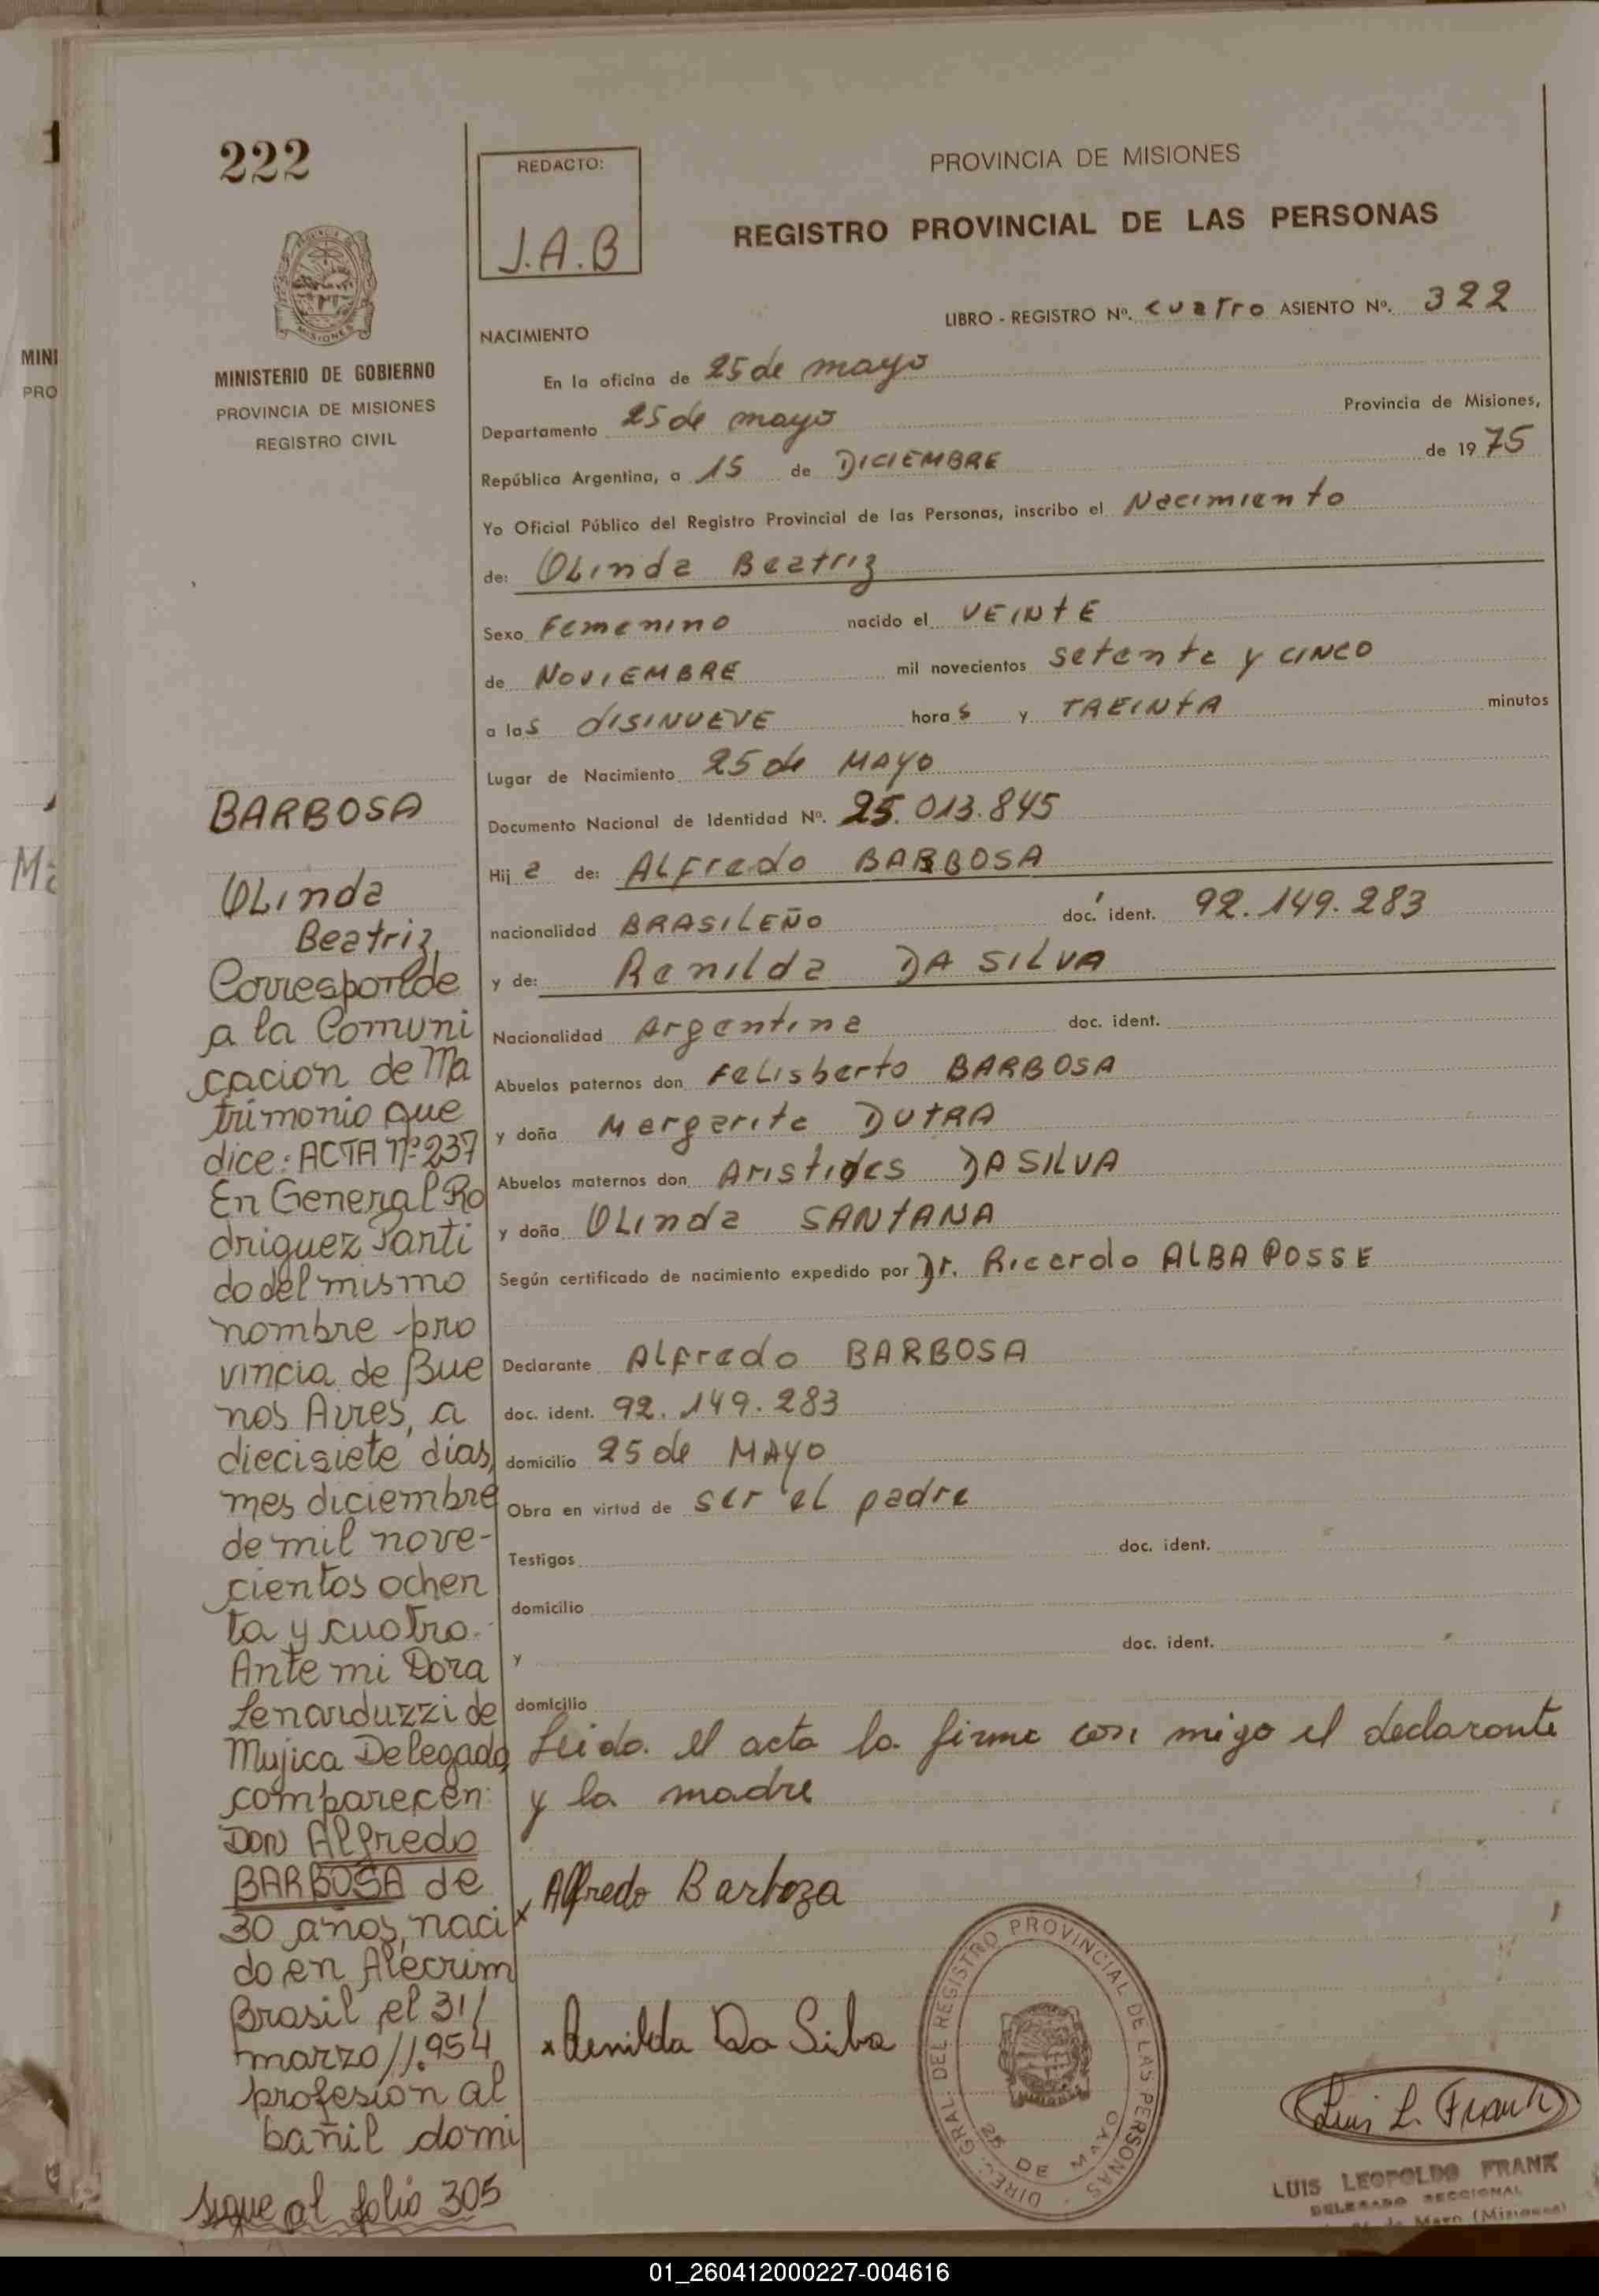 222
MINISTERIO DE GOBIERNO
PROVINCIA DE MISIONES
REGISTRO CIVIL
REDACTO:
J.A.B
PROVINCIA DE MISIONES
REGISTRO PROVINCIAL DE LAS PERSONAS
LIBRO - REGISTRO Nº. cuatro ASIENTO Nº. 322
NACIMIENTO
En la oficina de 25 de mayo
Departamento 25 de mayo Provincia de Misiones,
República Argentina, a 15 de DICIEMBRE de 1975
Yo Oficial Público del Registro Provincial de las Personas, inscribo el Nacimiento
de: OLinda Beatriz
Sexo Femenino nacido el VEINTE
de NOVIEMBRE mil novecientos setenta y CINCO
a las DISINUEVE horas y TREINTA minutos
Lugar de Nacimiento 25 de MAYO
Documento Nacional de Identidad Nº. 25.013.845
Hija de: ALFredo BARBOSA
nacionalidad BRASILEÑO doc. ident. 92.149.283
y de: Renilda DA SILVA
Nacionalidad Argentina doc. ident.
Abuelos paternos don FeLisberto BARBOSA
y doña Margarita DUTRA
Abuelos maternos don Aristides DASILVA
y doña OLinda SANTANA
Según certificado de nacimiento expedido por Dr. Ricardo ALBA POSSE
Declarante ALFredo BARBOSA
doc. ident. 92.149.283
domicilio 25 de MAYO
Obra en virtud de ser el padre
Testigos doc. ident.
domicilio
y doc. ident.
domicilio
Leida el acta la firma con migo el declarante
y la madre
Alfredo Barboza
Renilda Da Silva
DIREC. GRAL. DEL REGISTRO PROVINCIAL DE LAS PERSONAS
25 DE MAYO
Luis L. Frank
LUIS LEOPOLDO FRANK
DELEGADO SECCIONAL
25 de Mayo (Misiones)
BARBOSA
OLinda
Beatriz
Corresponde
a la Comuni
cacion de Ma
trimonio que
dice: ACTA Nº 237
En General Ro
driguez Parti
do del mismo
nombre pro
vincia de Bue
nos Aires, a
diecisiete dias,
mes diciembre
de mil nove-
cientos ochen
ta y cuatro.-
Ante mi Dora
Lenarduzzi de
Mujica Delegada,
comparecen:
Don Alfredo
BARBOSA de
30 años, naci
do en Alecrim
Brasil el 31/
marzo/1.954
profesion al
bañil domi
sigue al folio 305
1
MINI
PRO
Ma
01_260412000227-004616